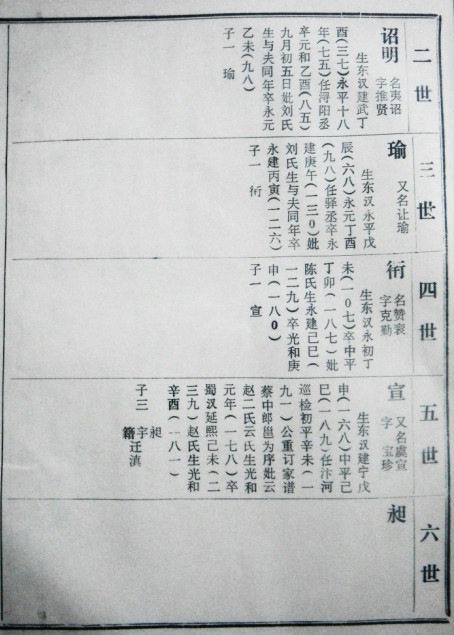 二世
诏明
名夷诏
字推贤
生东汉建武丁
酉(三七)永平十八
年(七五)任浔阳丞
卒元和乙酉(八五)
九月初五日妣刘氏
生与夫同年卒永元
乙未(九八)
子一 瑜
三世
瑜
又名让瑜
生东汉永平戊
辰(六八)永元丁酉
(九八)任驿丞卒永
建庚午(一三0)妣
刘氏生与夫同年卒
永建丙寅(一二六)
子一 衎
四世
衎
名赞衮
字克勤
生东汉永初丁
未(一0七)卒中平
丁卯(一八七)妣
陈氏生永建己巳(
一二九)卒光和庚
申(一八0)
子一 宣
五世
宣
又名虞宣
字 宝珍
生东汉建宁戊
申(一六八)中平己
巳(一八九)任汴河
巡检初平辛未(一
九一)公重订家谱
蔡中郎邕为序妣云
赵二氏云氏生光和
元年(一七八)卒
蜀汉延熙己未(二
三九)赵氏生光和
辛酉(一八一)
子三 昶
宇
籍迁滇
六世
昶